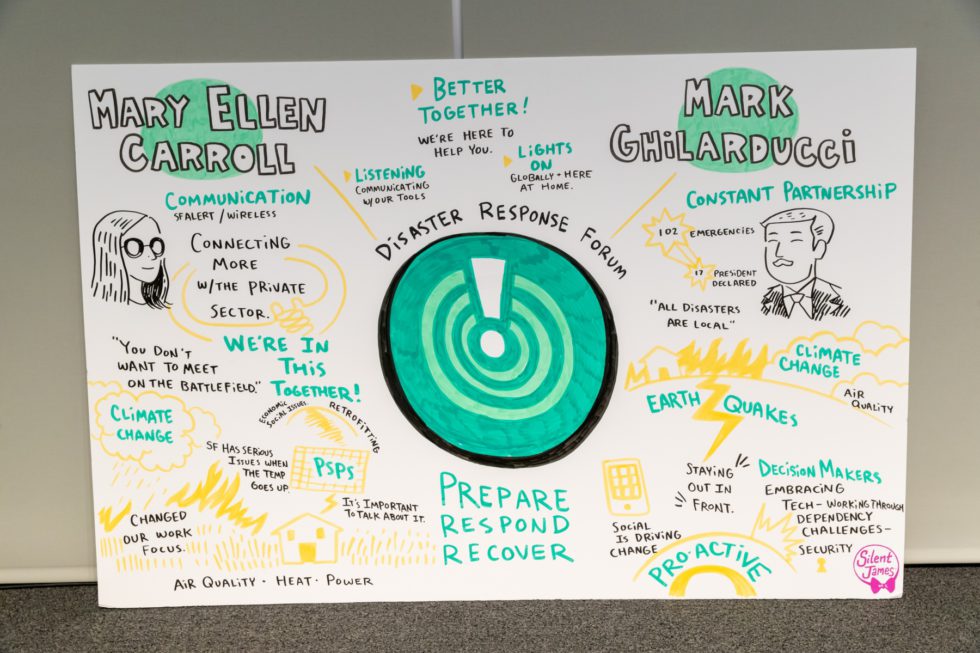 MARY ELLEN
CARROLL
COMMUNICATION
SFALERT / WIRELESS
CONNECTING
MORE
W/THE PRIVATE
SECTOR.
"YOU DON'T
WANT TO MEET
ON THE BATTLEFIELD."
WE'RE IN
THIS
TOGETHER!
CLIMATE
CHANGE
ECONOMIC
SOCIAL ISSUES.
RETROFITTING
SF HAS SERIOUS
ISSUES WHEN
THE TEMP
GOES UP.
PSPS
IT'S IMPORTANT
TO TALK ABOUT IT.
CHANGED
OUR WORK
FOCUS.
AIR QUALITY · HEAT · POWER
BETTER
TOGETHER!
WE'RE HERE TO
HELP YOU.
LISTENING
COMMUNICATING
W/OUR TOOLS
LIGHTS
ON
GLOBALLY + HERE
AT HOME.
DISASTER RESPONSE FORUM
PREPARE
RESPOND
RECOVER
MARK
GHILARDUCCI
CONSTANT PARTNERSHIP
102 EMERGENCIES
17 PRESIDENT
DECLARED
"ALL DISASTERS
ARE LOCAL"
CLIMATE
CHANGE
AIR
QUALITY
EARTH QUAKES
SOCIAL
IS DRIVING
CHANGE
STAYING
OUT IN
FRONT.
PRO·ACTIVE
DECISION MAKERS
EMBRACING
TECH - WORKING THROUGH
DEPENDENCY
CHALLENGES -
SECURITY
Silent
James